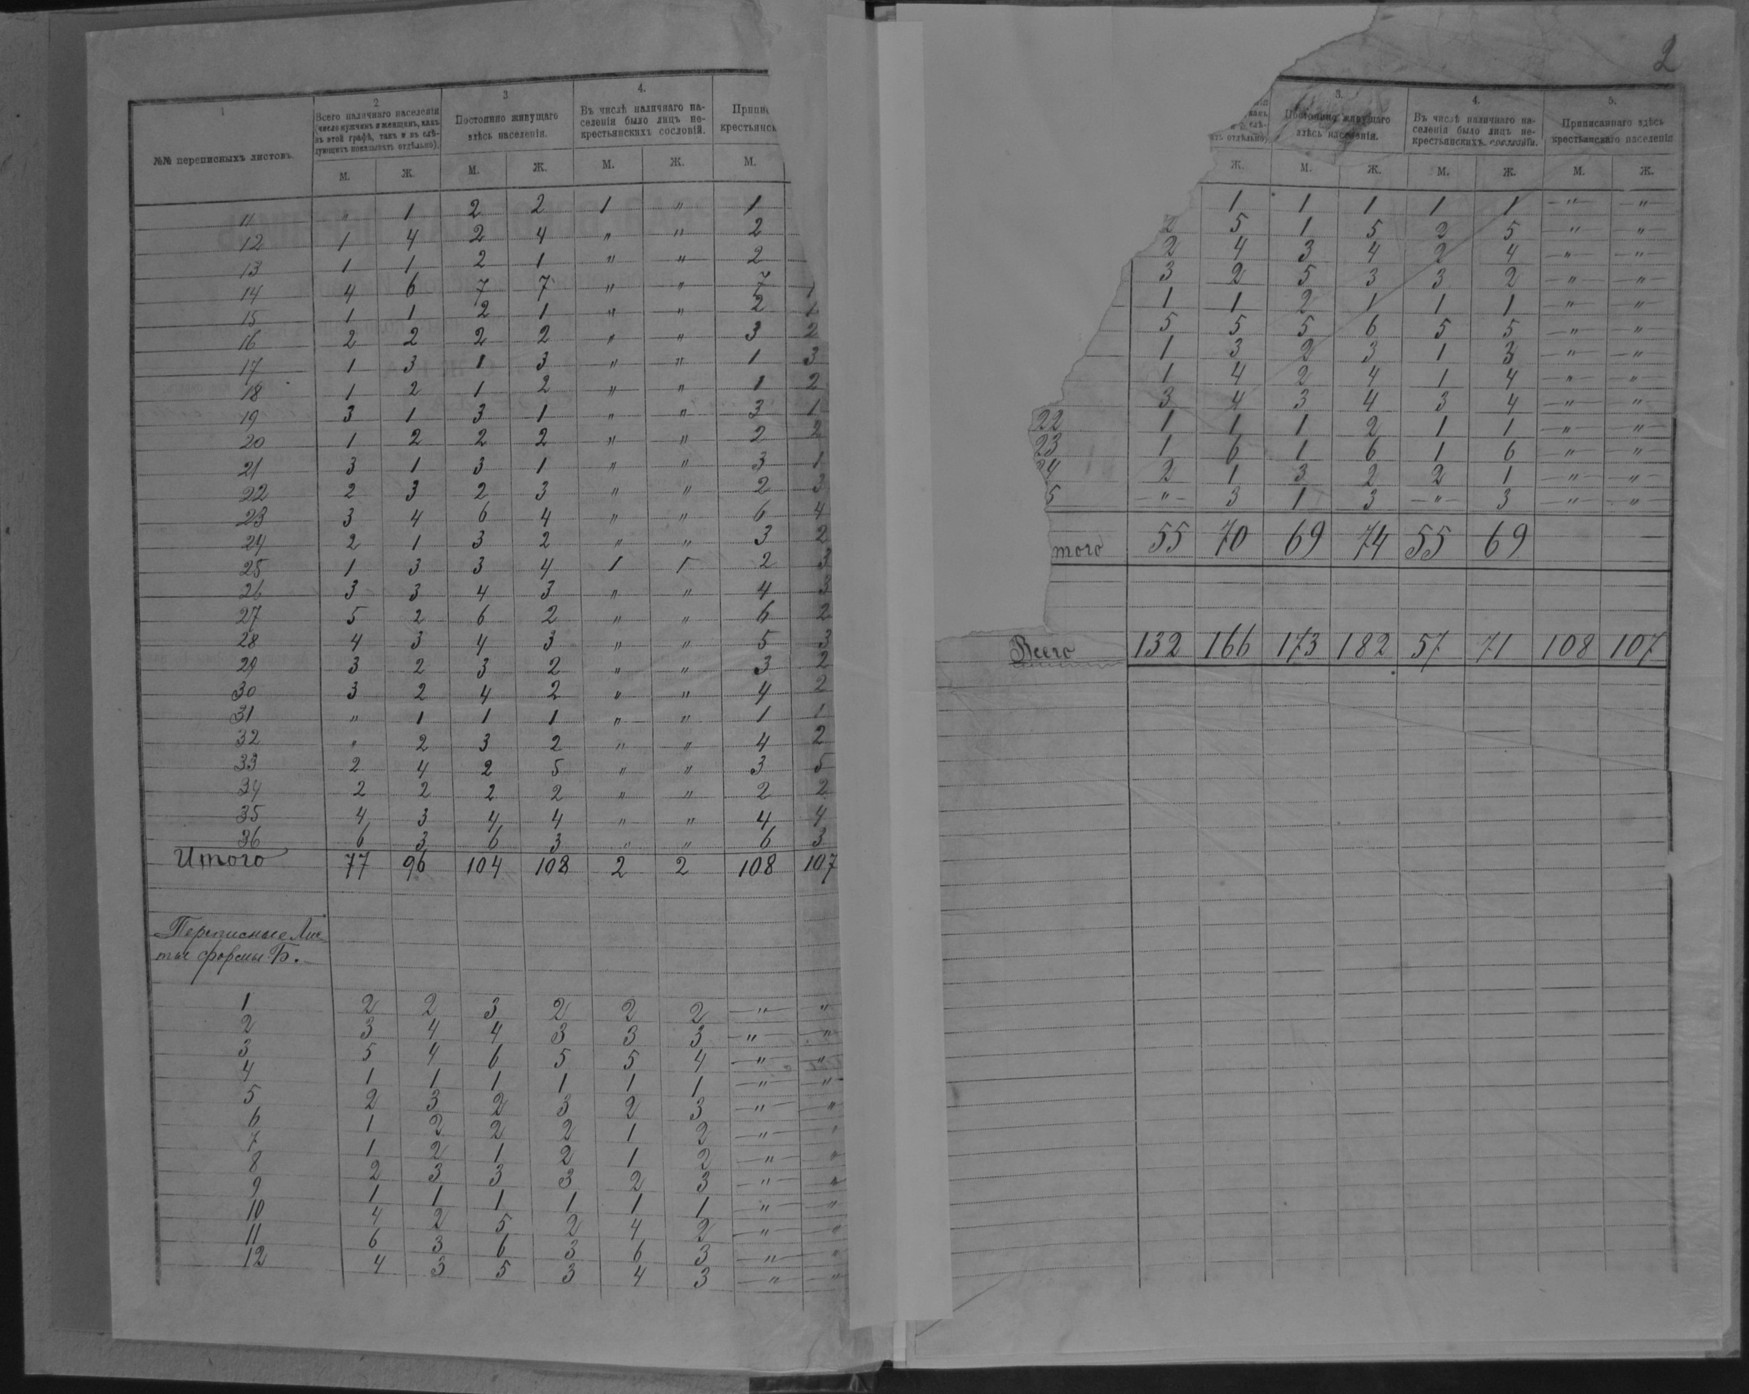 1
№№ переписныхъ листовъ.
2
Всего наличнаго населенія (число мужчинъ и женщинъ, какъ въ этой графѣ, такъ и въ слѣдующихъ показывать отдѣльно).
3.
Постоянно живущаго здѣсь населенія.
4.
Въ числѣ наличнаго населенія было лицъ некрестьянскихъ сословій.
М. Ж. М. Ж. М. Ж. М.
11 " 1 2 2 1 " 1
12 1 4 2 4 " " 2
13 1 1 2 1 " " 2
14 4 6 7 7 " " 7
15 1 1 2 1 " " 2 1
16 2 2 2 2 " " 3 2
17 1 3 1 3 " " 1 3
18 1 2 1 2 " " 1 2
19 3 1 3 1 " " 3 1
20 1 2 2 2 " " 2 2
21 3 1 3 1 " " 3 1
22 2 3 2 3 " " 2 3
23 3 4 6 4 " " 6 4
24 2 1 3 2 " " 3 2
25 1 3 3 4 1 1 2 3
26 3 3 4 3 " " 4 3
27 5 2 6 2 " " 6 2
28 4 3 4 3 " " 5 3
29 3 2 3 2 " " 3 2
30 3 2 4 2 " " 4 2
31 " 1 1 1 " " 1 1
32 " 2 3 2 " " 4 2
33 2 4 2 5 " " 3 5
34 2 2 2 2 " " 2 2
35 4 3 4 4 " " 4 4
36 6 3 6 3 " " 6 3
Итого 77 96 104 108 2 2 108 107
Переписные Лис
ты формы Б.
1 2 2 3 2 2 2 " "
2 3 4 4 3 3 3 " "
3 5 4 6 5 5 4 " "
4 1 1 1 1 1 1 " "
5 2 3 2 3 2 3 " "
6 1 2 2 2 1 2 " "
7 1 2 1 2 1 2 " "
8 2 3 3 3 2 3 " "
9 1 1 1 1 1 1 " "
10 4 2 5 2 4 2 " "
11 6 3 6 3 6 3 " "
12 4 3 5 3 4 3 " "
2
3.
Постоянно живущаго здѣсь населенія.
4.
Въ числѣ наличнаго населенія было лицъ некрестьянскихъ сословій.
5.
Приписаннаго здѣсь крестьянскаго населенія
Ж. М. Ж. М. Ж. М. Ж.
1 1 1 1 1 " "
2 5 1 5 2 5 " "
2 4 3 4 2 4 " "
3 2 5 3 3 2 " "
1 1 2 1 1 1 " "
5 5 5 6 5 5 " "
1 3 2 3 1 3 " "
1 4 2 4 1 4 " "
3 4 3 4 3 4 " "
22 1 1 1 2 1 1 " "
23 1 6 1 6 1 6 " "
24 2 1 3 2 2 1 " "
5 " 3 1 3 " 3 " "
того 55 70 69 74 55 69
Всего 132 166 173 182 57 71 108 107